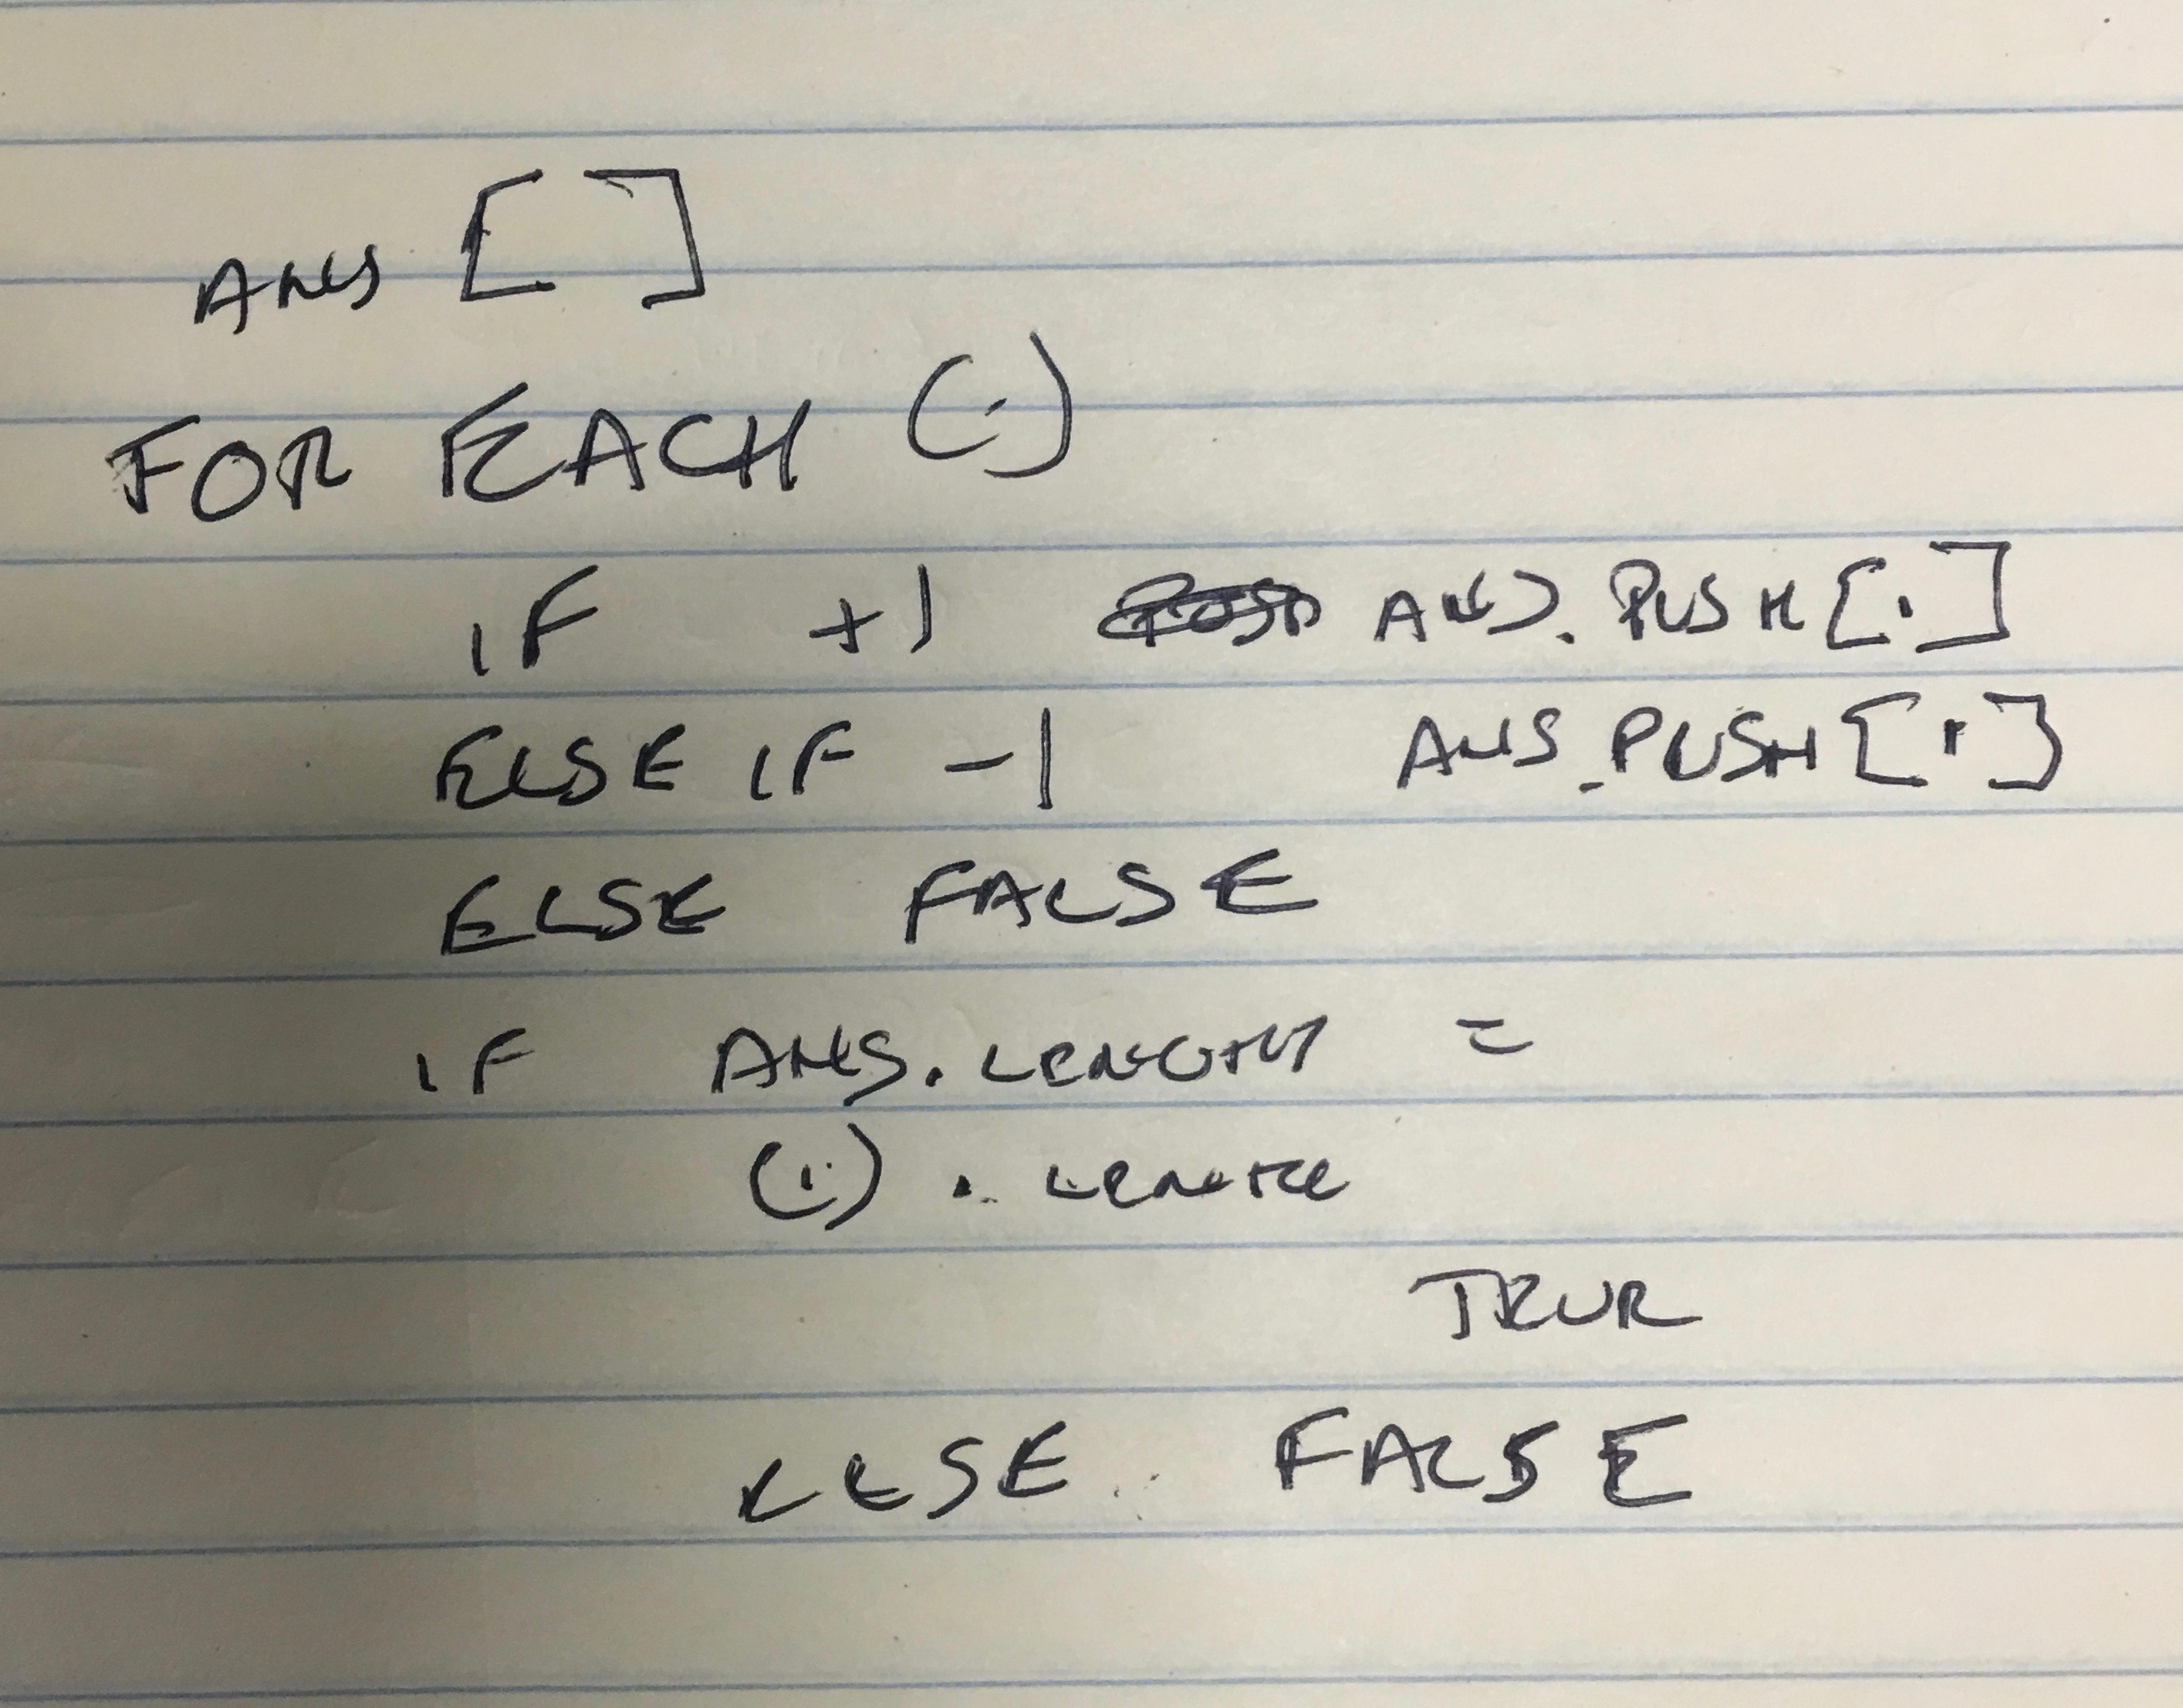 ANS []
FOR EACH (i)
IF +1 ANS.PUSH[i]
ELSE IF -1 ANS.PUSH[i]
ELSE FALSE
IF ANS.LENGTH =
(i).LENGTH
TRUE
ELSE FALSE